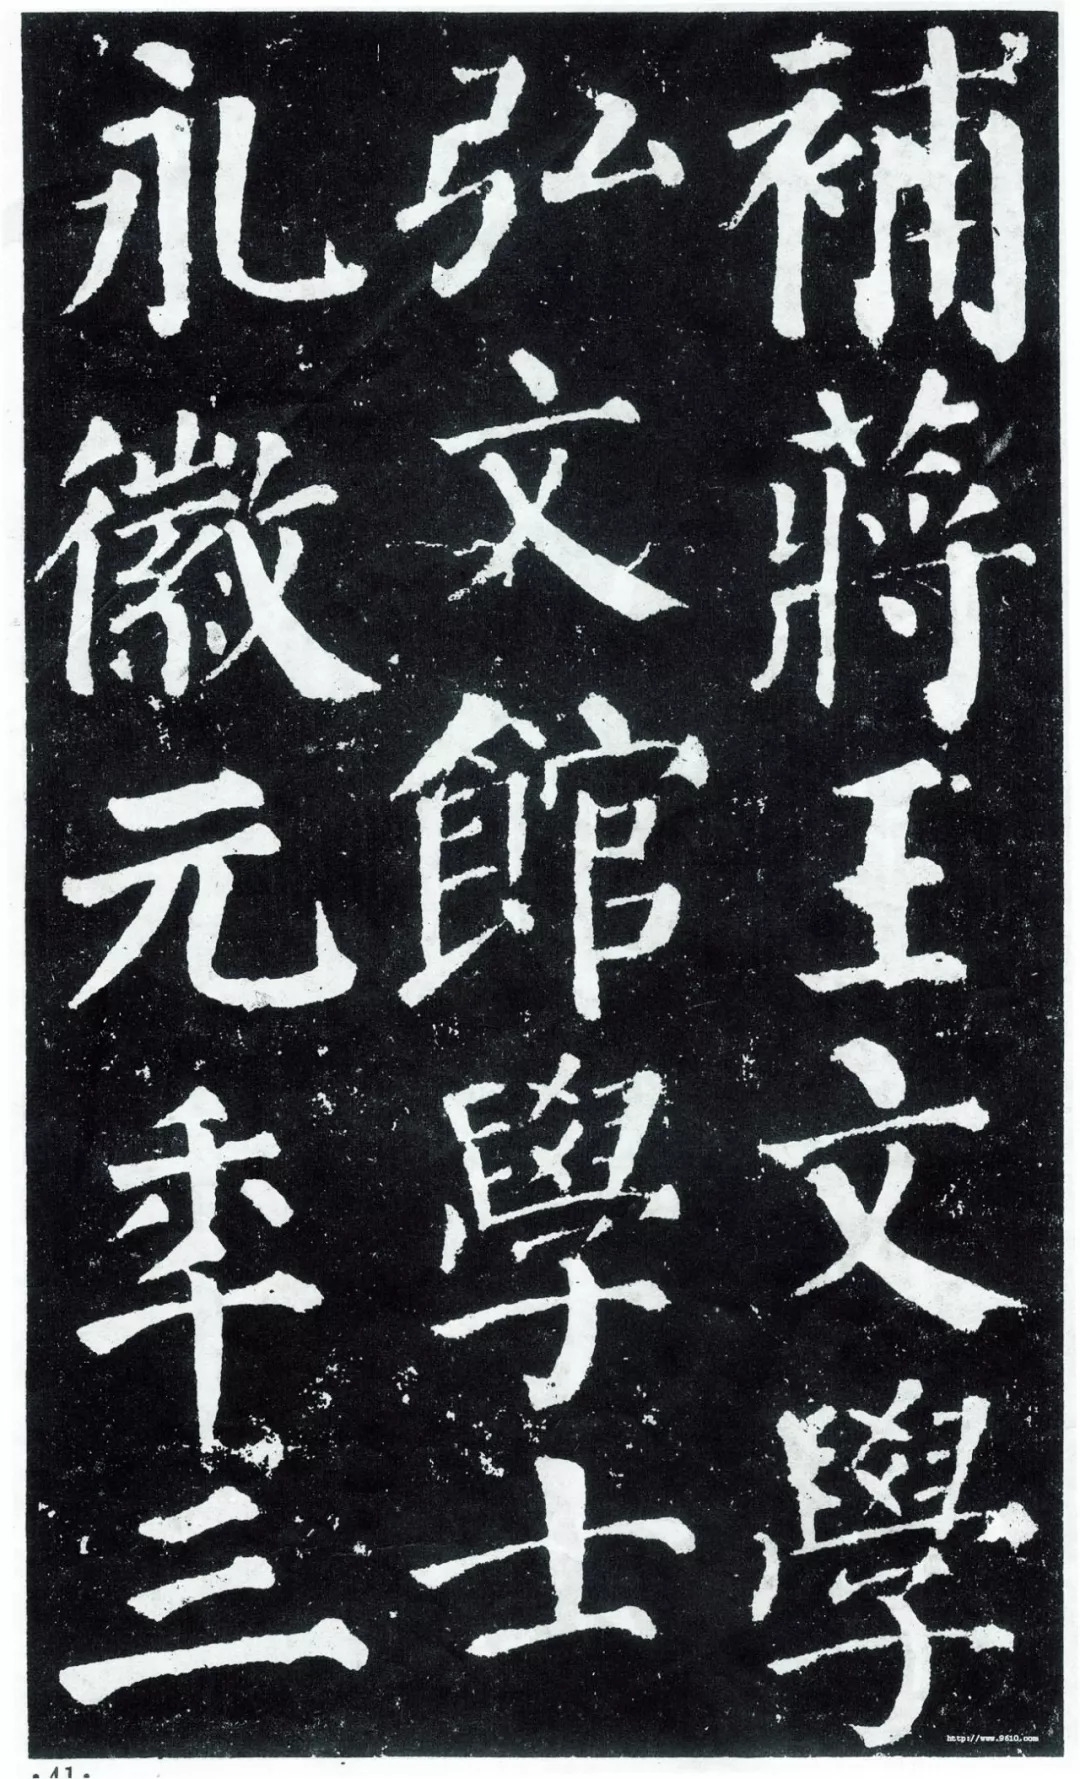 補蔣王文學
弘文館學士
永徽元年三
http://www.9610.com
·41·